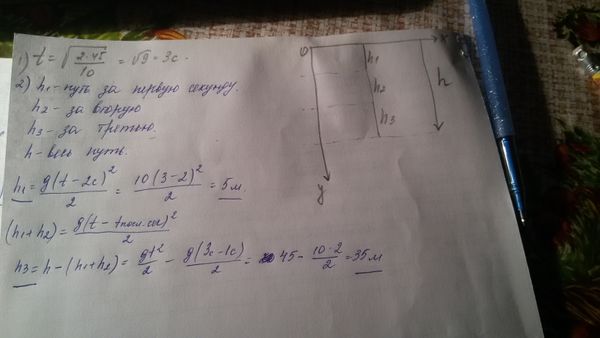 1) t = √(2·45/10) = √9 = 3с.
2) h₁ - путь за первую секунду.
h₂ - за вторую
h₃ - за третью.
h - весь путь.
h₁ = g(t-2c)²/2 = 10(3-2)²/2 = 5м.
(h₁+h₂) = g(t-tпосл.сек)²/2
h₃ = h-(h₁+h₂) = gt²/2 - g(3c-1c)/2 = 45 - 10·2/2 = 35м
0 x
h₁
h₂
h₃
h
y